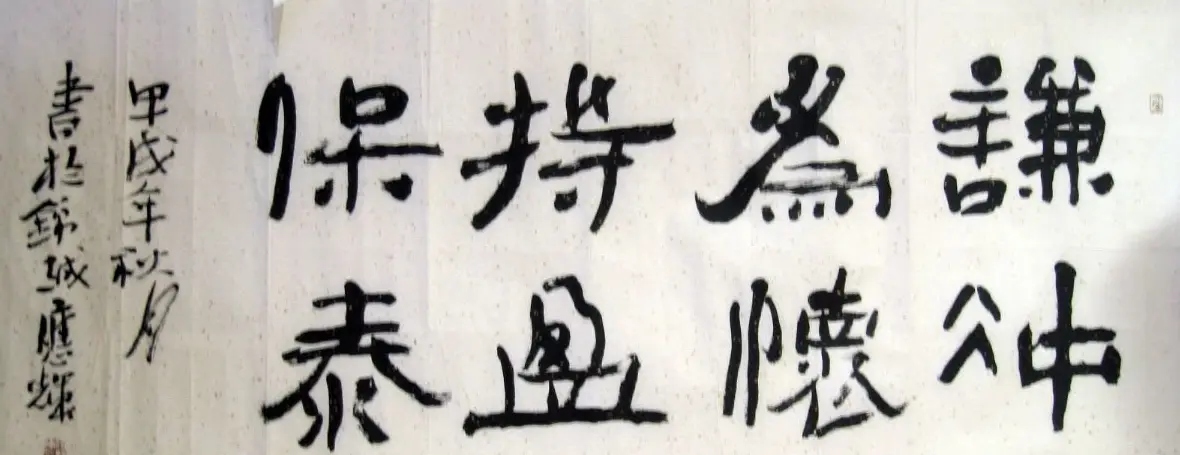 謙沖
為懷
持盈
保泰
甲戌年秋月
書於錦城應輝